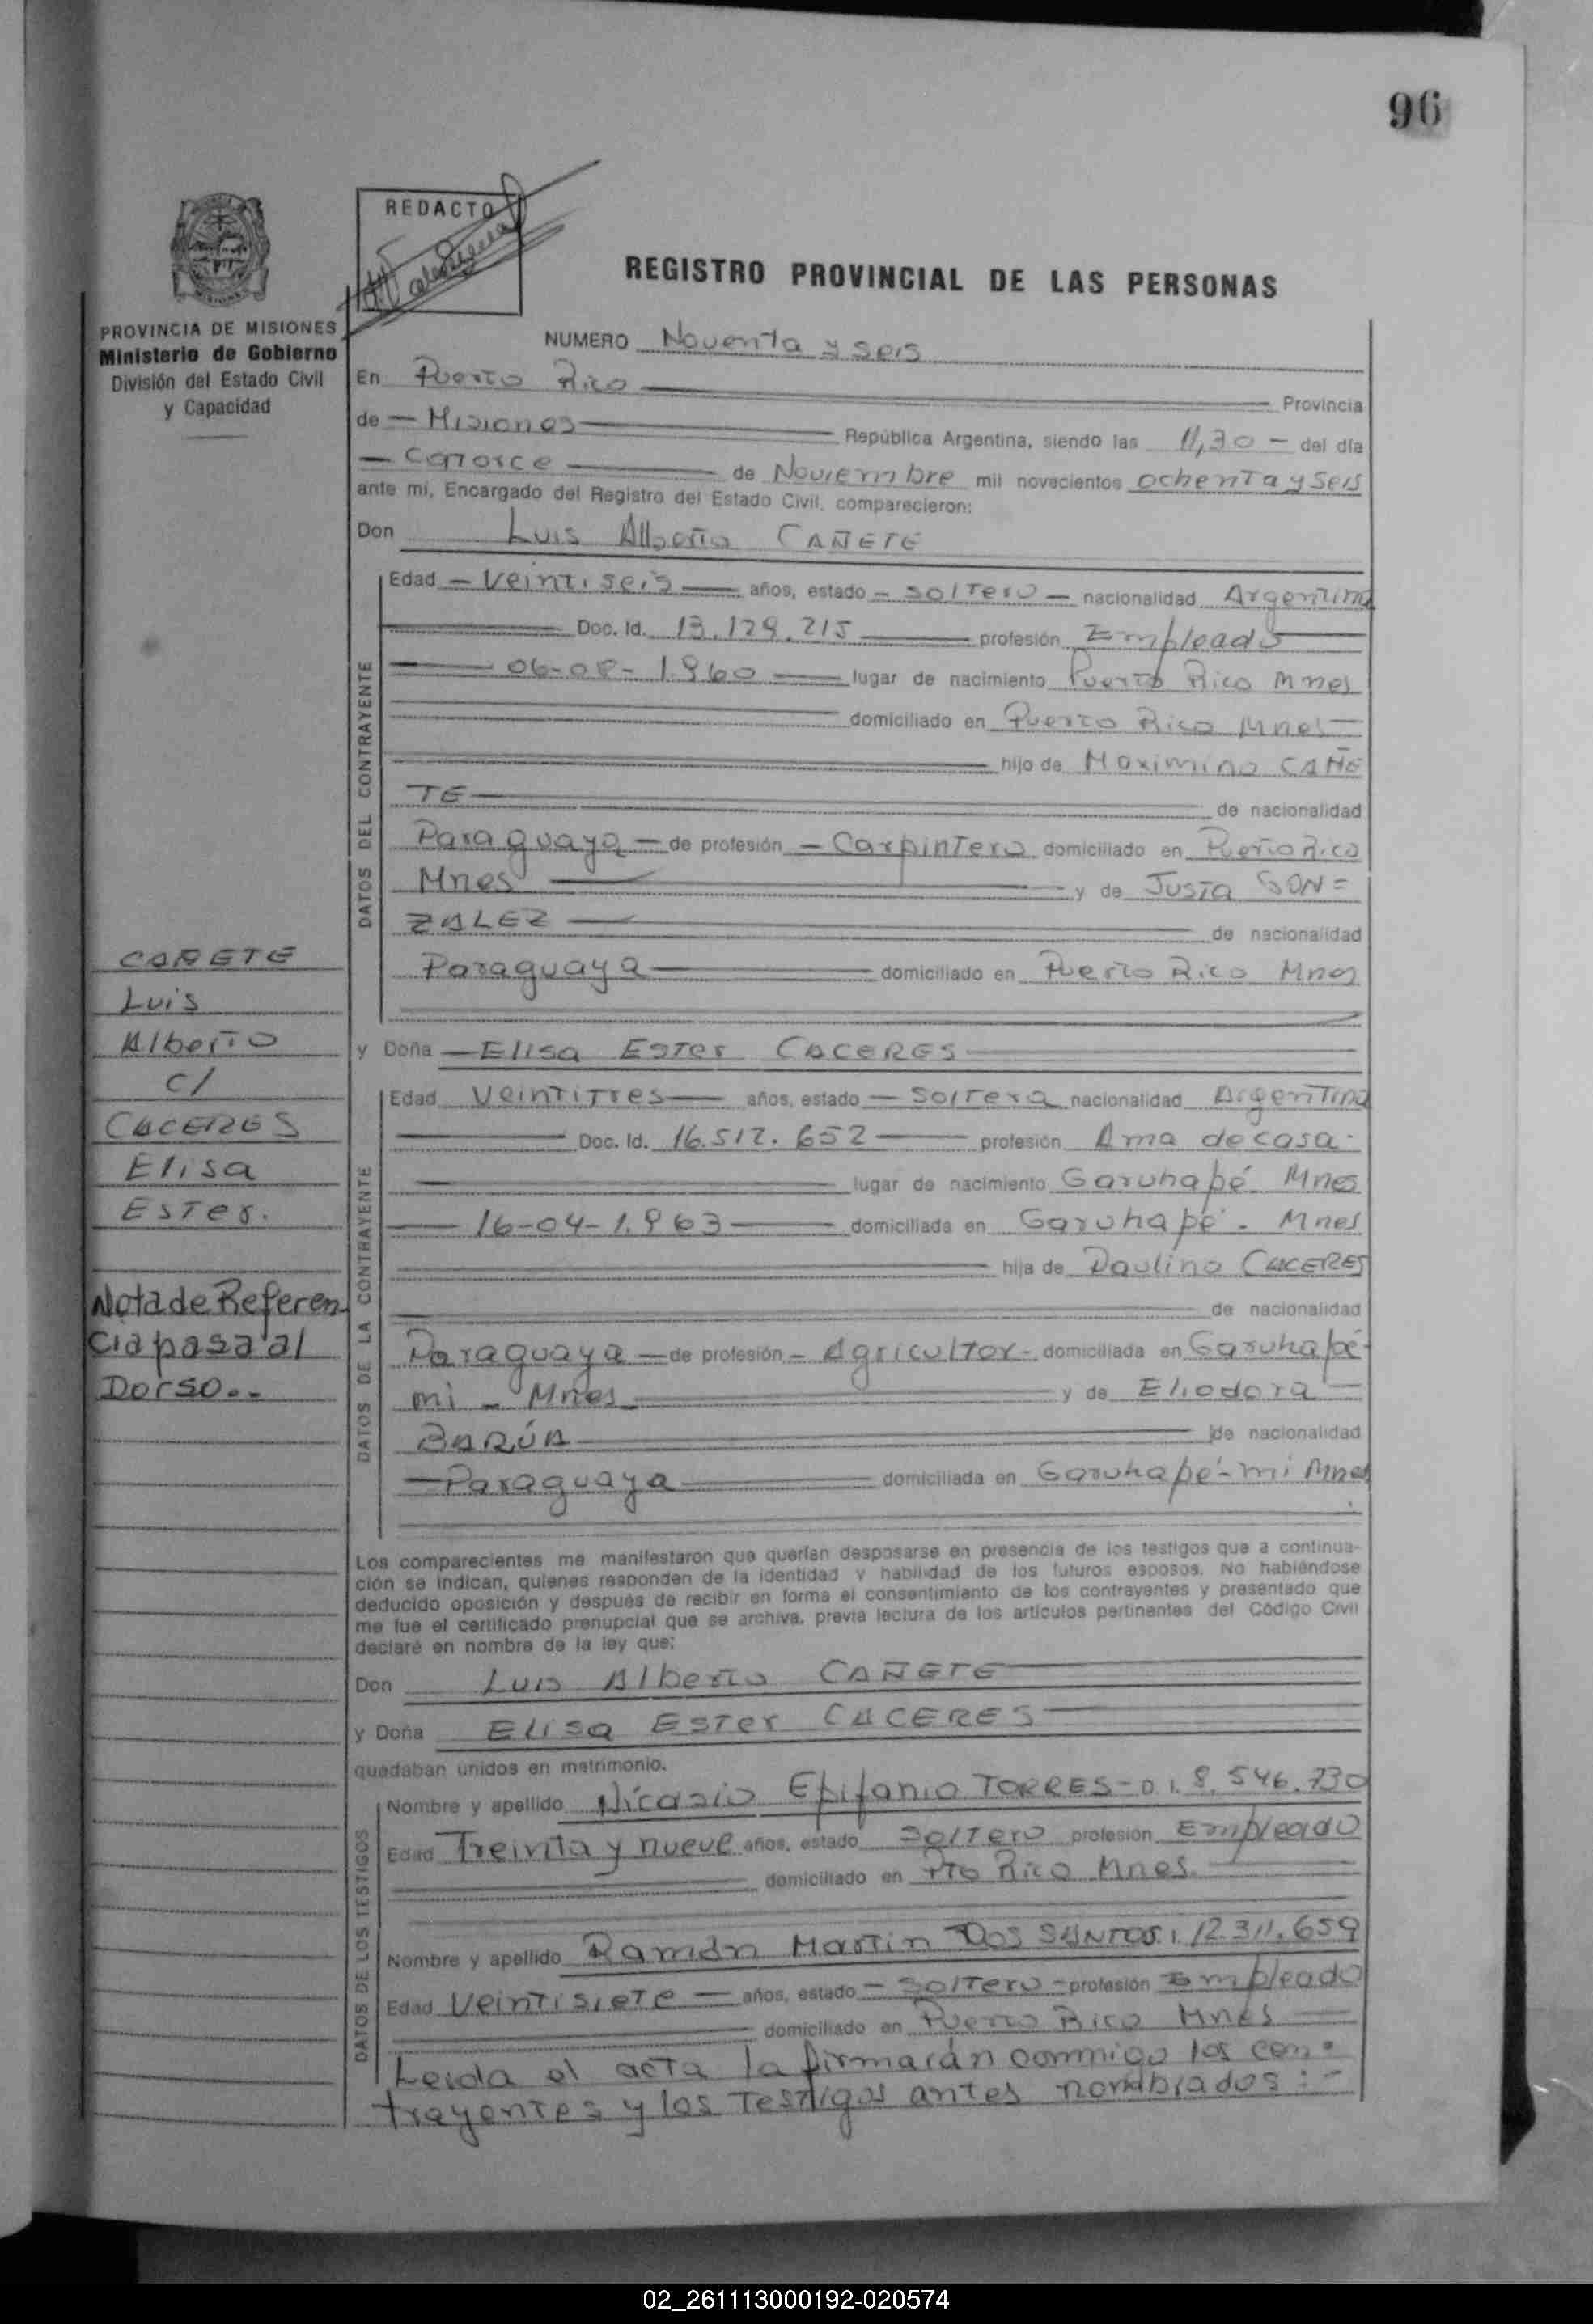 96
REDACTO
REGISTRO PROVINCIAL DE LAS PERSONAS
PROVINCIA DE MISIONES
Ministerio de Gobierno
División del Estado Civil
y Capacidad
NUMERO Noventa y seis
En Puerto Rico Provincia
de - Misiones República Argentina, siendo las 11,30 - del día
- Catorce de Noviembre mil novecientos ochenta y seis
ante mí, Encargado del Registro del Estado Civil, comparecieron:
Don Luis Alberto CAÑETE
DATOS DEL CONTRAYENTE
Edad - Veintiseis años, estado - Soltero - nacionalidad Argentina
Doc. Id. 13.129.215 profesión Empleado
06-08-1.960 lugar de nacimiento Puerto Rico Mnes
domiciliado en Puerto Rico Mnes
hijo de Maximino CAÑE
TE de nacionalidad
Paraguaya - de profesión - Carpintero domiciliado en Puerto Rico
Mnes y de Justa GON=
ZALEZ de nacionalidad
Paraguaya domiciliado en Puerto Rico Mnes
CAÑETE
Luis
Alberto
c/
CACERES
Elisa
Ester.
Nota de Referen
cia pasa al
Dorso..
y Doña - Elisa Ester CACERES
DATOS DE LA CONTRAYENTE
Edad Veintitres años, estado - Soltera nacionalidad Argentina
Doc. Id. 16.512.652 profesión Ama de casa.
lugar de nacimiento Garuhapé Mnes
16-04-1.963 domiciliada en Garuhapé - Mnes
hija de Paulino CACERES
de nacionalidad
Paraguaya - de profesión - Agricultor - domiciliada en Garuhapé-
mi - Mnes y de Eliodora
BARÚA de nacionalidad
- Paraguaya domiciliada en Garuhapé-mi Mnes
Los comparecientes me manifestaron que querían desposarse en presencia de los testigos que a continua-
ción se indican, quienes responden de la identidad y habilidad de los futuros esposos. No habiéndose
deducido oposición y después de recibir en forma el consentimiento de los contrayentes y presentado que
me fue el certificado prenupcial que se archiva, previa lectura de los artículos pertinentes del Código Civil
declaré en nombre de la ley que:
Don Luis Alberto CAÑETE
y Doña Elisa Ester CACERES
quedaban unidos en matrimonio.
DATOS DE LOS TESTIGOS
Nombre y apellido Nicasio Epifanio TORRES - D.I. 8.546.730
Edad Treinta y nueve años, estado Soltero profesión Empleado
domiciliado en Pto Rico Mnes.
Nombre y apellido Ramón Martin DOS SANTOS I. 12.311.659
Edad Veintisiete - años, estado - Soltero - profesión Empleado
domiciliado en Puerto Rico Mnes
Leida el acta la firmarán conmigo los con-
trayentes y los Testigos antes nombrados:-
02_261113000192-020574